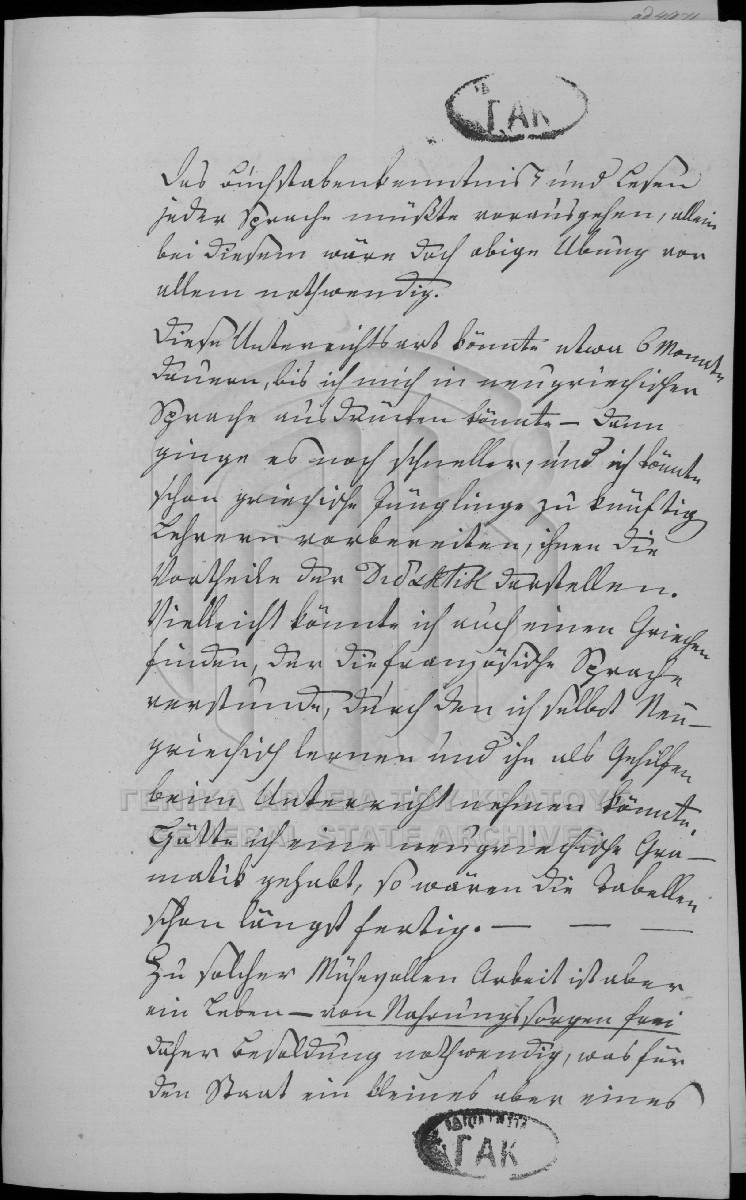 ad 4971
ΓΑΚ
Das Buchstabenkenntniß und Lesen
jeder Sprache müßte vorausgehen, allein
bei diesem wäre doch obige Übung vor
allem nothwendig.
Diese Unterrichtsart könnte etwa 6 Monate
dauern, bis ich mich in neugriechischer
Sprache ausdrücken könnte – dann
ginge es noch schneller, und ich könnte
schon griechische Jünglinge zu künftig
Lehrern vorbereiten, ihnen die
Vortheile der Didaktik darstellen.
Vielleicht könnte ich auch einen Griechen
finden, der die französische Sprache
verstunde, durch den ich selbst Neu–
griechisch lernen und ihn als Gehilfen
beim Unterricht nehmen könnte.
Hätte ich eine neugriechische Gra–
matik gehabt, so wären die Tabellen
schon längst fertig. — — —
Zu solcher Mühevollen Arbeit ist aber
ein Leben – von Nahrungssorgen frei
daher Besoldung nothwendig, was für
den Staat ein kleines aber eines
ΓΕΝΙΚΑ ΑΡΧΕΙΑ ΤΟΥ ΚΡΑΤΟΥΣ
GENERAL STATE ARCHIVES
ΓΑΚ